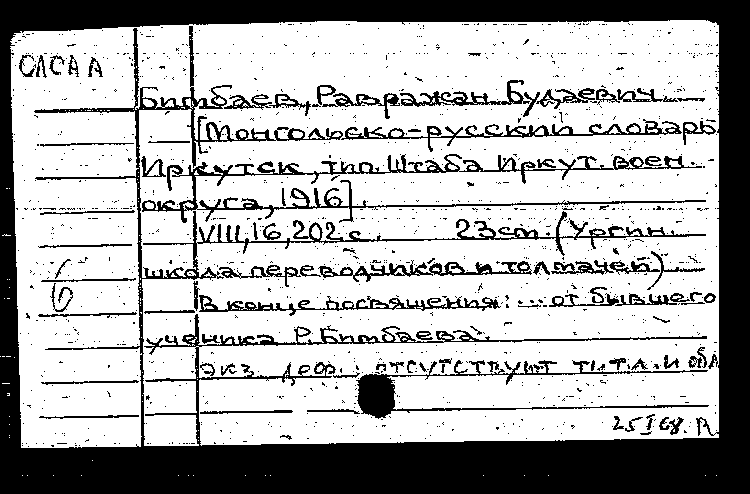 ОЛСАА
Бимбаев, Равражан Будаевич.
[Монгольско-русский словарь
Иркутск, тип. Штаба Иркут. воен.
округа, 1916].
VIII, 16, 202 с. 23 см. (Ургин.
школа переводчиков и толмачей)
В конце посвящения: ... от бывшего
ученика Р. Бимбаева.
Экз. деф.: отсутствуют тит. л. и обл
б
25 I 68.